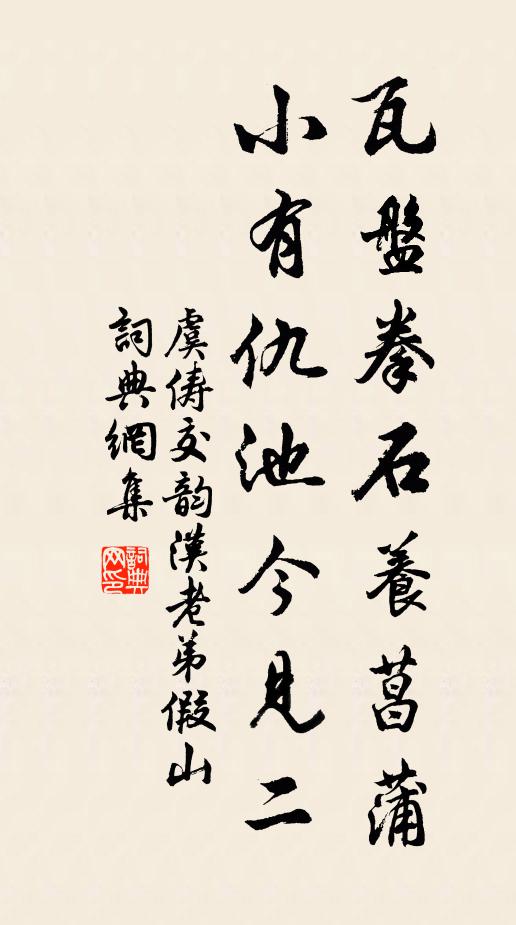 瓦盤拳石養菖蒲
小有仇池今見二
虞儔交韵漢老弟假山
詞典網集
詞典網印